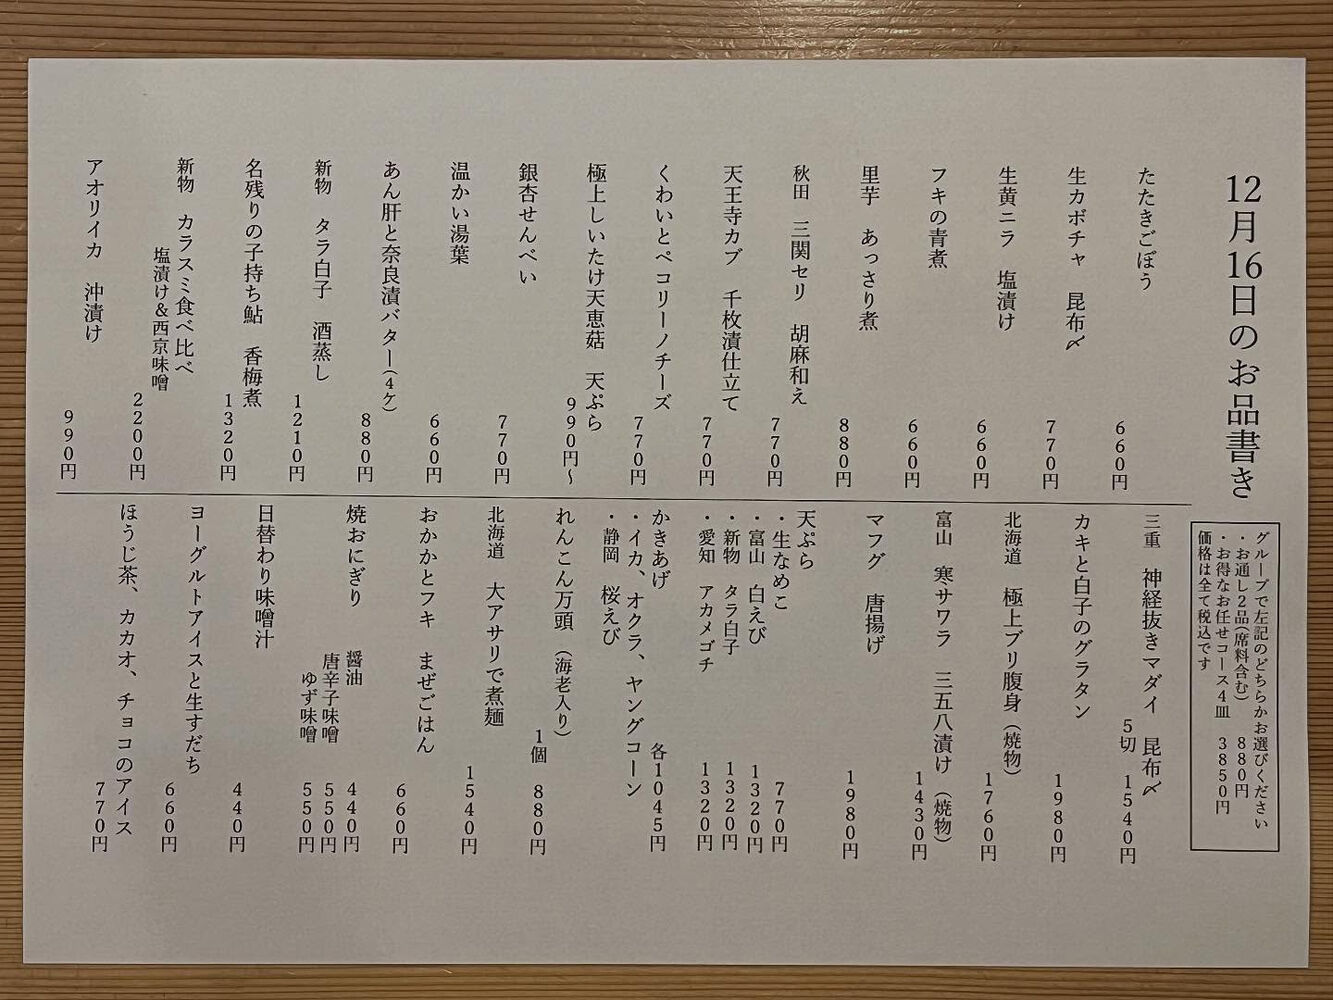 12月16日のお品書き
グループで左記のどちらかお選びください
・お通し2品(席料含む) 880円
・お得なお任せコース4皿 3850円
価格は全て税込です
たたきごぼう 660円
生カボチャ 昆布〆 770円
生黄ニラ 塩漬け 660円
フキの青煮 660円
里芋 あっさり煮 880円
秋田 三関セリ 胡麻和え 770円
天王寺カブ 千枚漬仕立て 770円
くわいとペコリーノチーズ 770円
極上しいたけ天恵菇 天ぷら 990円~
銀杏せんべい 770円
温かい湯葉 660円
あん肝と奈良漬バター(4ケ) 880円
新物 タラ白子 酒蒸し 1210円
名残りの子持ち鮎 香梅煮 1320円
新物 カラスミ食べ比べ
塩漬け&西京味噌 2200円
アオリイカ 沖漬け 990円
三重 神経抜きマダイ 昆布〆
5切 1540円
カキと白子のグラタン 1980円
北海道 極上ブリ腹身(焼物) 1760円
富山 寒サワラ 三五八漬け(焼物) 1430円
マフグ 唐揚げ 1980円
天ぷら
・生なめこ 770円
・富山 白えび 1320円
・新物 タラ白子 1320円
・愛知 アカメゴチ 1320円
かきあげ 各1045円
・イカ、オクラ、ヤングコーン
・静岡 桜えび
れんこん万頭(海老入り)
1個 880円
北海道 大アサリで煮麺 1540円
おかかとフキ まぜごはん 660円
焼おにぎり 醤油 440円
唐辛子味噌 550円
ゆず味噌 550円
日替わり味噌汁 440円
ヨーグルトアイスと生すだち 660円
ほうじ茶、カカオ、チョコのアイス 770円